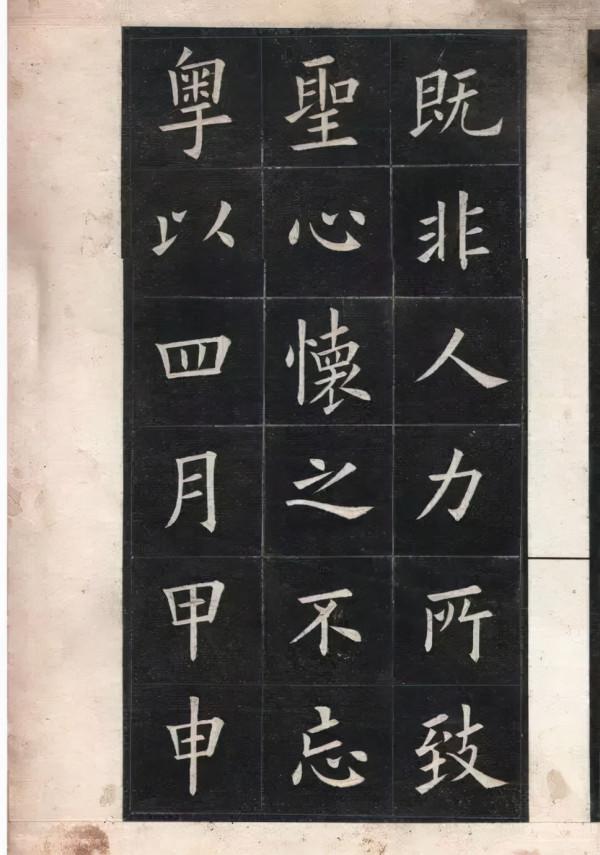 既非人力所致
聖心懷之不忘
粤以四月甲申